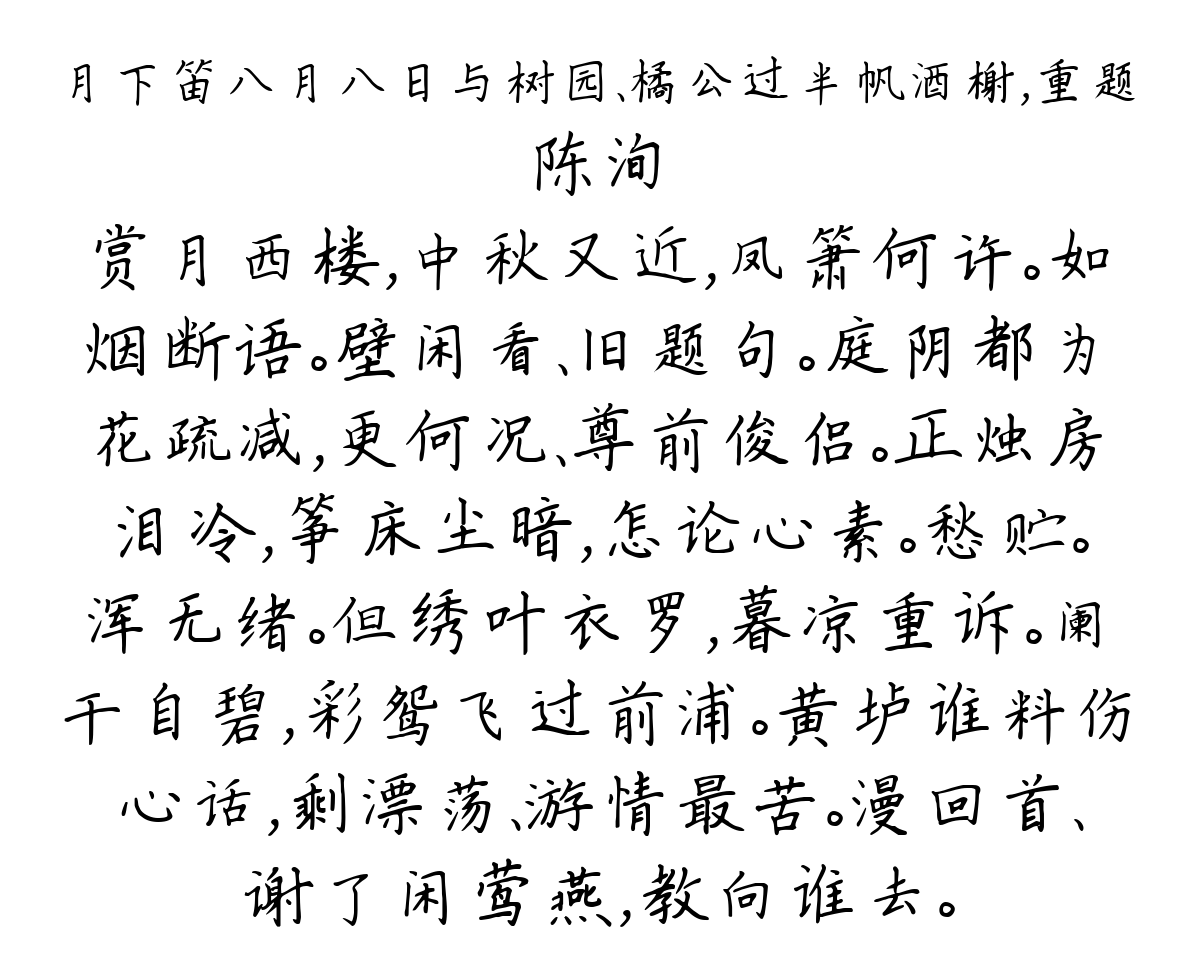 月下笛八月八日与树园、橘公过半帆酒榭,重题
陈洵
赏月西楼,中秋又近,凤箫何许。如
烟断语。壁闲看、旧题句。庭阴都为
花疏减,更何况、尊前俊侣。正烛房
泪冷,筝床尘暗,怎论心素。愁贮。
浑无绪。但绣叶衣罗,暮凉重诉。阑
干自碧,彩鸳飞过前浦。黄垆谁料伤
心话,剩漂荡、游情最苦。漫回首、
谢了闲莺燕,教向谁去。